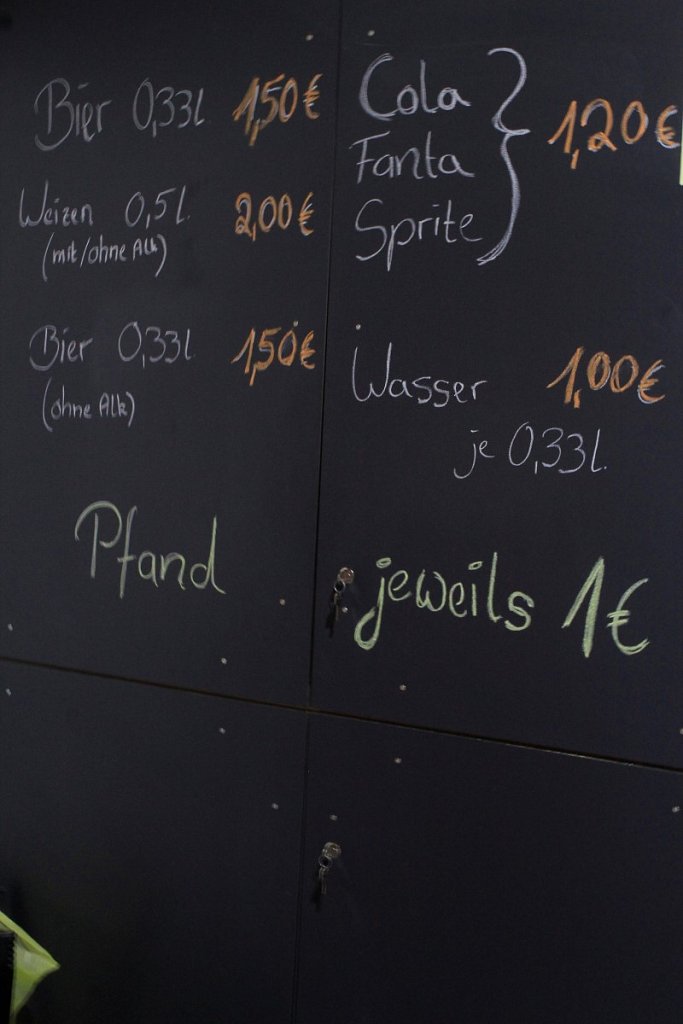 Bier 0,33l 1,50€
Weizen 0,5l. 2,00€
(mit/ohne Alk)
Bier 0,33l 1,50€
(ohne Alk)
Cola
Fanta
Sprite
1,20€
Wasser 1,00€
je 0,33l.
Pfand jeweils 1€